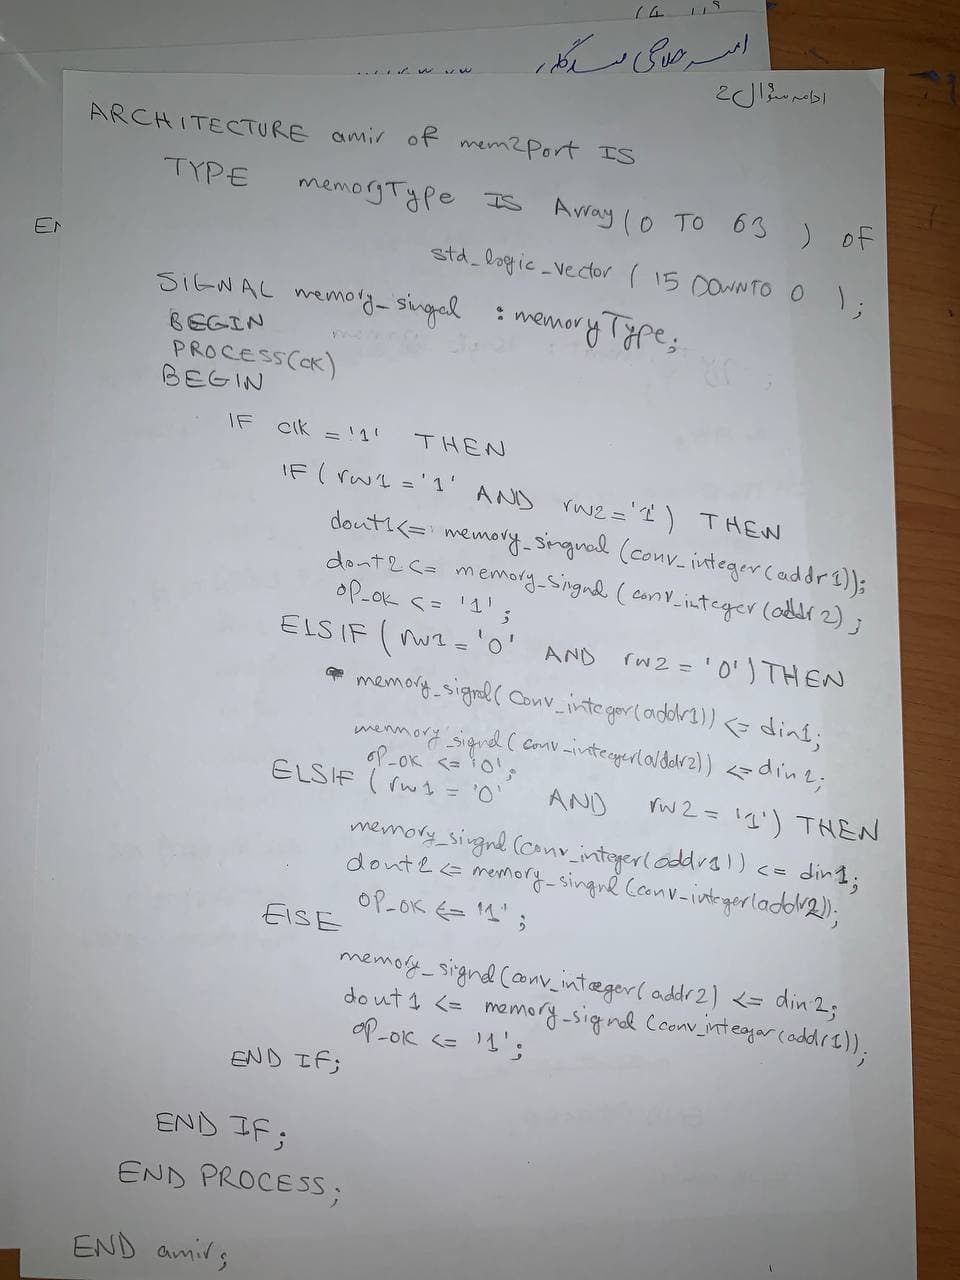 امیر صلاحی
ادامه سؤال 2
ARCHITECTURE amir of mem2port IS
TYPE memorgType IS Array (0 TO 63 ) of
std_logic_vector ( 15 DOWNTO 0 );
SIGNAL memory_singal : memoryType;
BEGIN
PROCESS(clk)
BEGIN
IF clk = '1' THEN
IF ( rw1 = '1' AND rw2 = '1' ) THEN
dout1 <= memory_singnal (conv_integer(addr1));
dout2 <= memory_singnal (conv_integer (addr 2) ;
op_ok <= '1';
ELSIF ( rw1 = '0' AND rw2 = '0' ) THEN
memory_signal( Conv_integer(addr1)) <= din1;
memmory_signal ( conv_integer(addr2)) <= din 2;
op_ok <= '0';
ELSIF ( rw1 = '0' AND rw2 = '1') THEN
memory_singnal (conv_integer( addr1)) <= din1;
dout2 <= memory_singnal (conv_integer(addr2));
op_ok <= '1';
ElSE
memory_signal (conv_integer( addr2) <= din2;
dout1 <= memory_signal (conv_integer(addr1));
op_ok <= '1';
END IF;
END IF;
END PROCESS;
END amir;